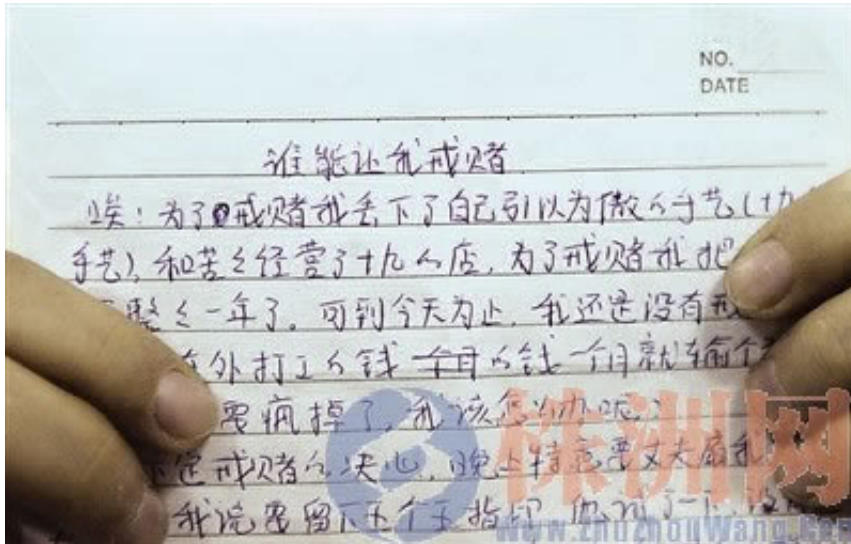 NO.
DATE
谁能让我戒赌
唉：为了戒赌我丢下了自己引以为傲的手艺(十九
手艺)，和苦々经营了十九的店，为了戒赌我把
整々一年了。可到今天为止，我还是没有戒
外打工的钱 一个月的钱一个月就输个
要疯掉了，我该怎么办呢？
下定戒赌的决心，晚上特意要丈夫扇我
我说要留下五个手指印，他试了一下，没
株洲网
www.zhuzhouwang.com